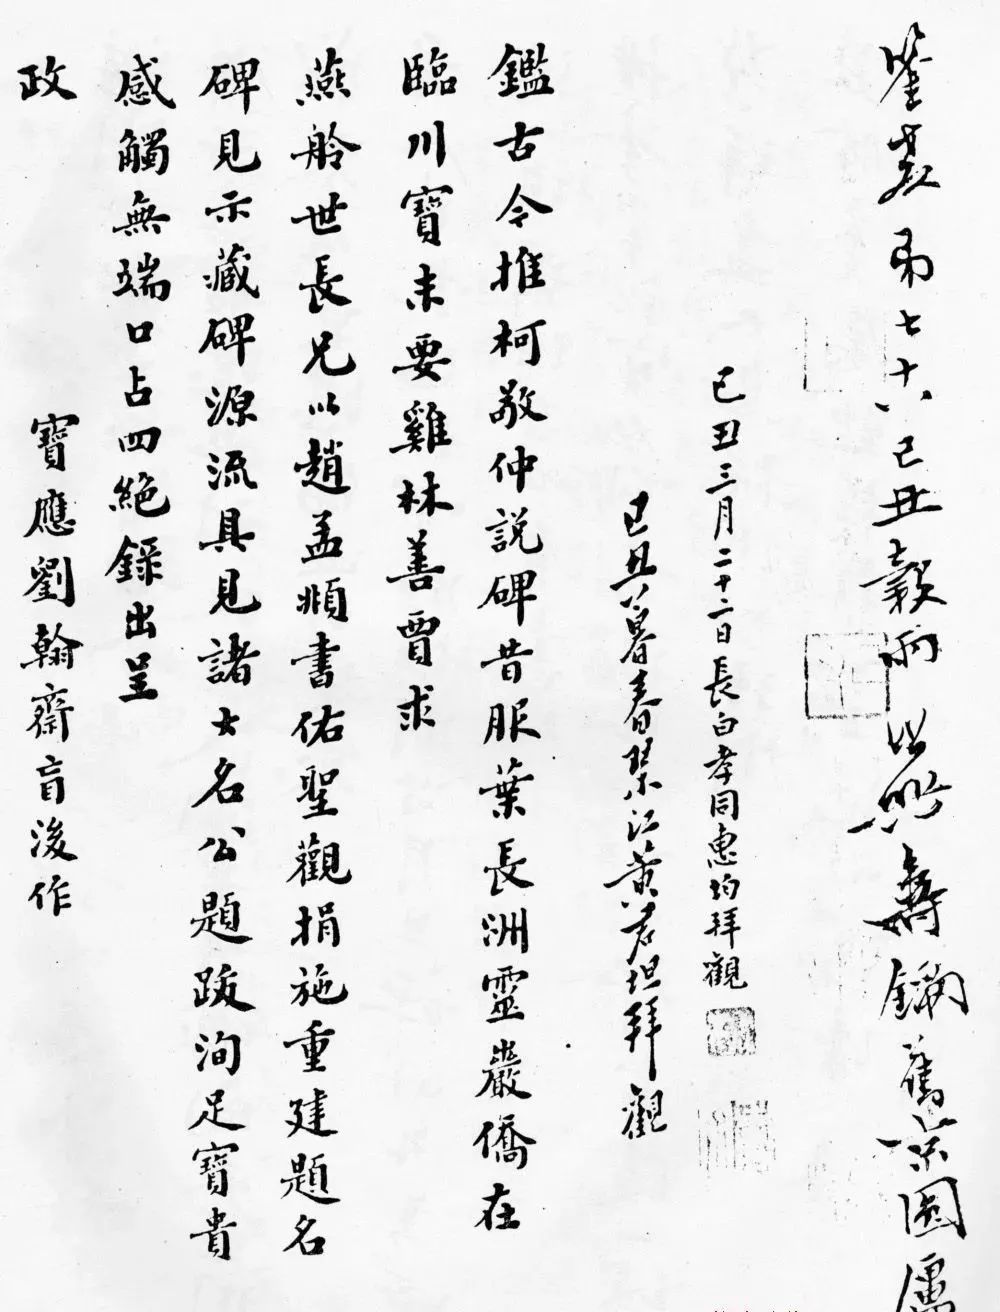 年七十六己丑穀雨
舊京園寓
己丑三月二十二日長白孝同惠均拜觀
己丑暮春琴江黃君坦拜觀
鑑古今推柯敬仲説碑昔服葉長洲靈巖僑在
臨川寶未要雞林善賈求
燕舲世長兄以趙孟頫書佑聖觀捐施重建題名
碑見示藏碑源流具見諸大名公題跋洵足寶貴
感觸無端口占四絶録出呈
政
寶應劉翰齋盲後作